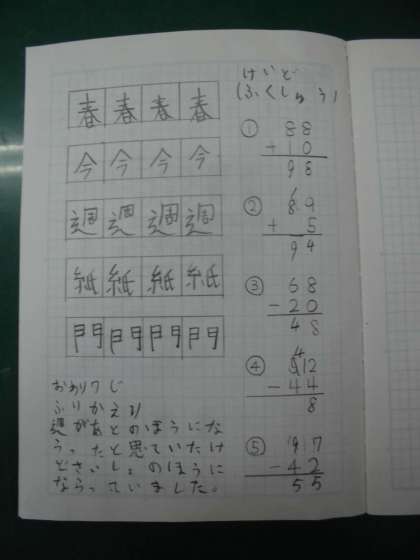 春春春春
今今今今
週週週週
紙紙紙紙
門門門門
ふりかえり
週があとのほうにな
らったと思ていたけ
どさいしょのほうに
ならっていました。
けいど
(ふくしゅう)
① 88
+10
98
② 89
+ 5
94
③ 68
-20
48
④ 4
512
-44
8
⑤ 97
-42
55